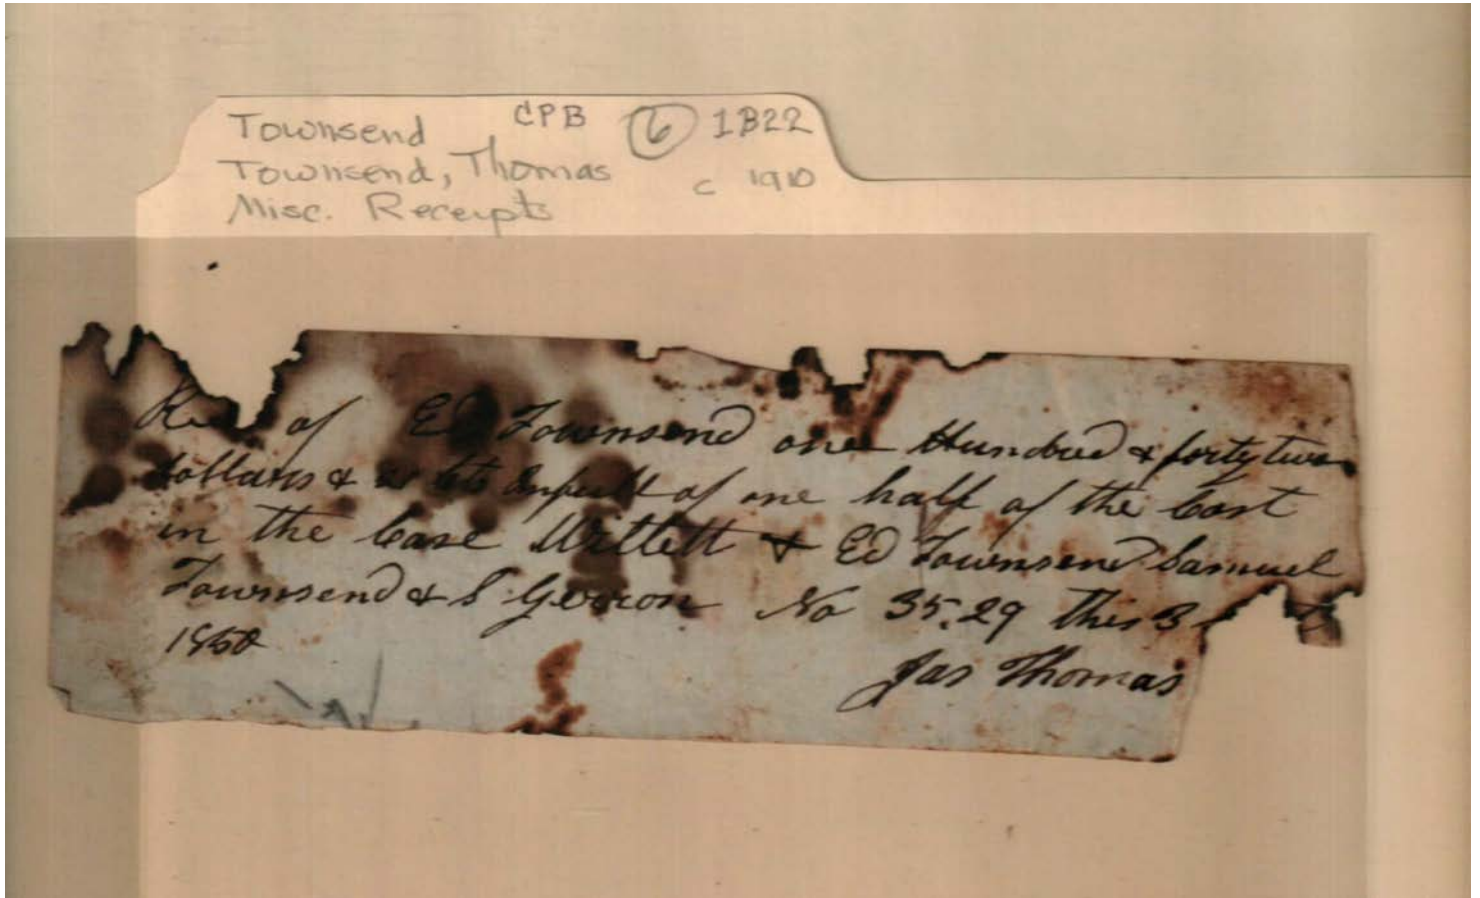 Townsend CPB 6 1B22
Townsend, Thomas c 1910
Misc. Receipts
of Ed Townsend one Hundred & forty two
dollars & cts in full of one half of the Cost
in the Case Willett & Ed Townsend Samuel
Townsend & S Gerron No 35.29 this 3
1860
Jas Thomas